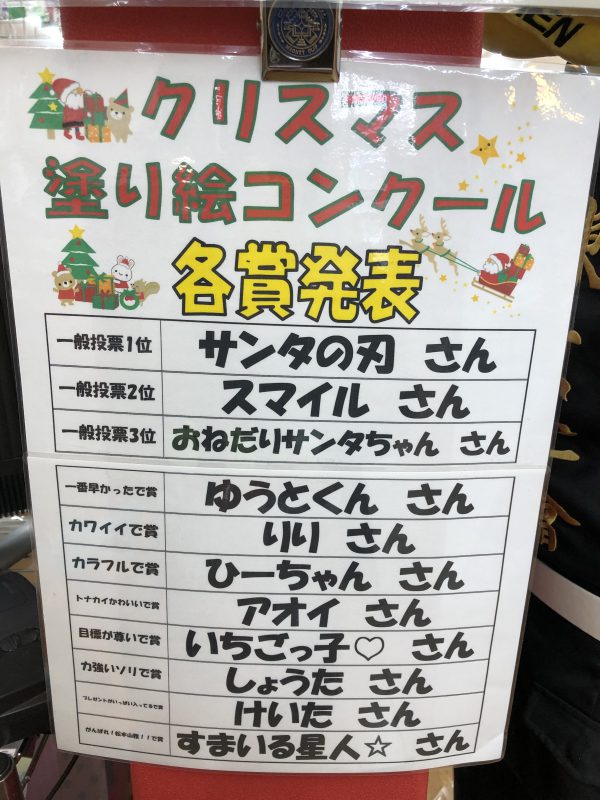 クリスマス
塗り絵コンクール
各賞発表
一般投票1位 サンタの刃 さん
一般投票2位 スマイル さん
一般投票3位 おねだりサンタちゃん さん
一番早かったで賞 ゆうとくん さん
カワイイで賞 りり さん
カラフルで賞 ひーちゃん さん
トナカイかわいいで賞 アオイ さん
目標が尊いで賞 いちごっ子♡ さん
力強いソリで賞 しょうた さん
プレゼントがいっぱい入ってるで賞 けいた さん
がんばれ！松本山雅！！で賞 すまいる星人☆ さん